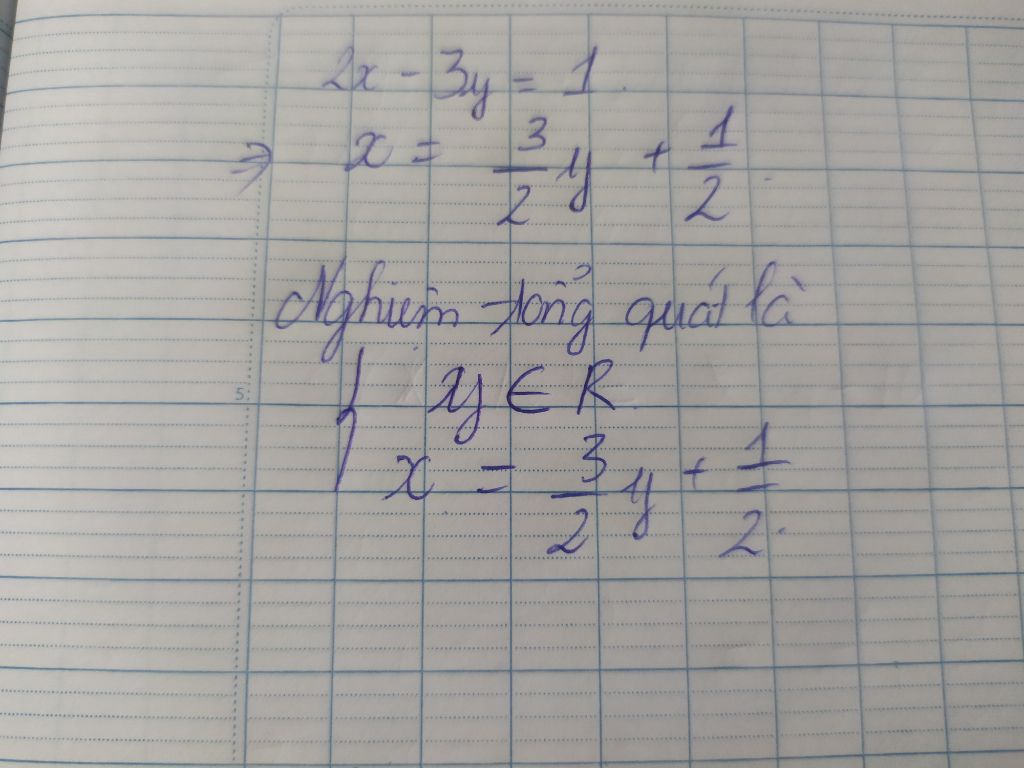 2x - 3y = 1.
=> x = 3/2 y + 1/2.
Nghiệm tổng quát là
{ xy ∈ R
x = 3/2 y + 1/2.
5